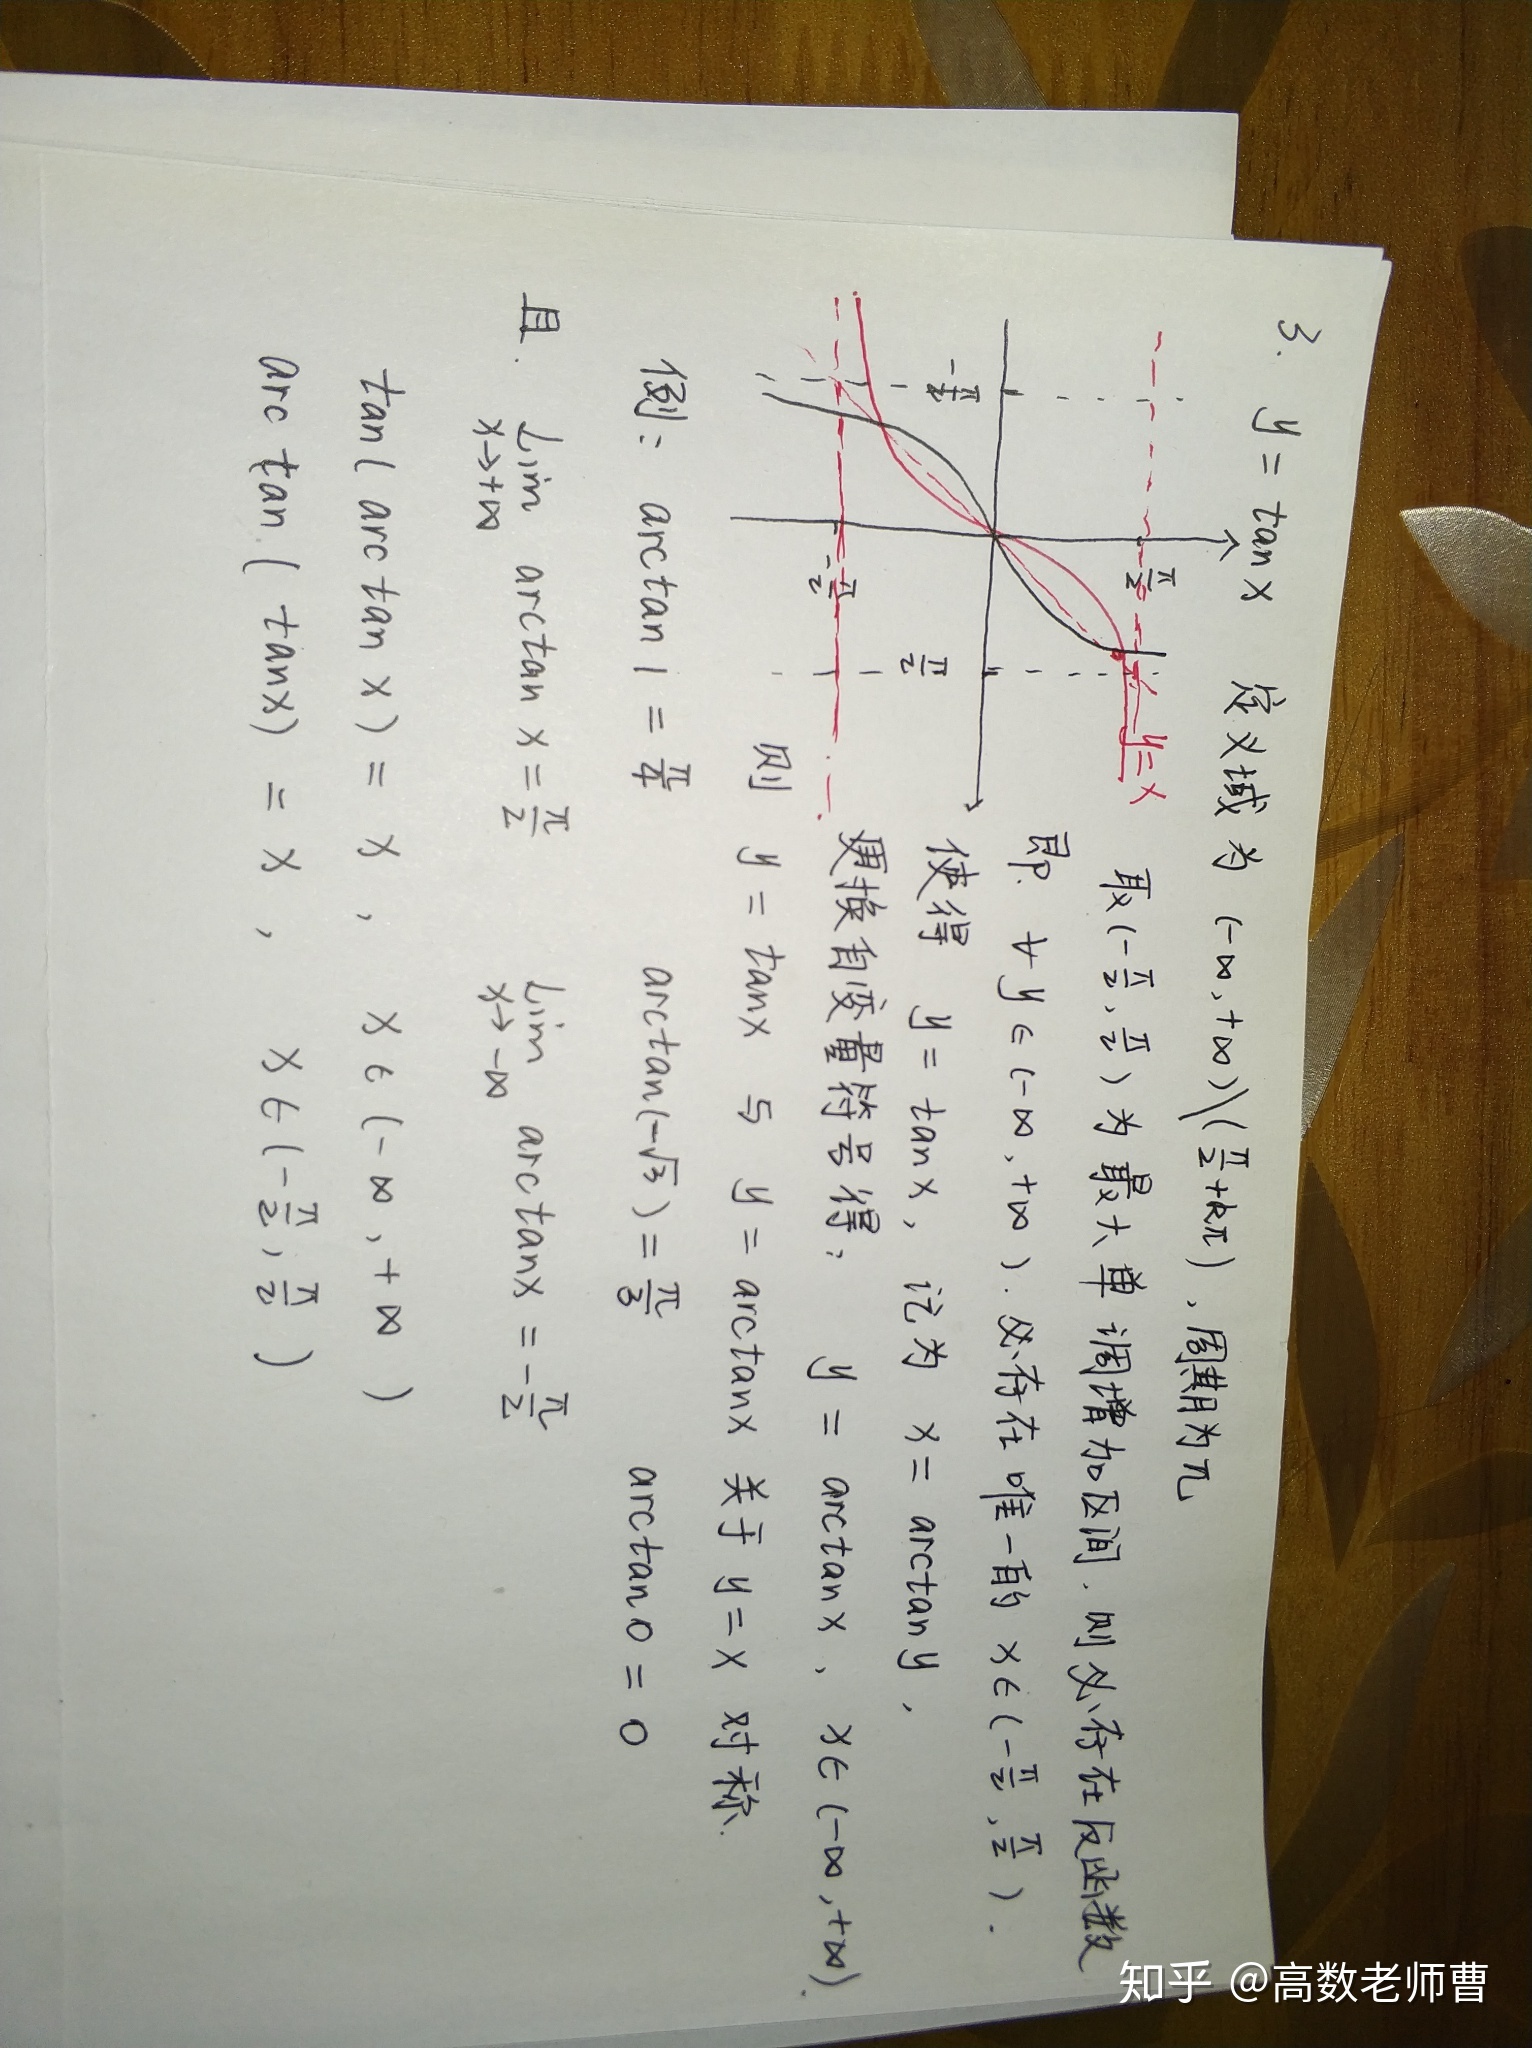 3. y = tan x 定义域为 (-∞,+∞)\(π/2+kπ), 周期为π
取(-π/2, π/2)为最大单调增加区间. 则必存在反函数
即. ∀y∈(-∞,+∞). 必存在唯一的 x∈(-π/2, π/2).
使得 y = tan x, 记为 x = arctan y,
更换自变量符号得, y = arctan x, x∈(-∞,+∞).
则 y = tan x 与 y = arctan x 关于 y = x 对称.
y=x
π/2
-π/2
π/2
-π/2
例: arctan 1 = π/4 arctan(-√3) = π/3 arctan 0 = 0
且. Lim x→+∞ arctan x = π/2 Lim x→-∞ arctan x = -π/2
tan(arc tan x) = x, x∈(-∞,+∞)
arc tan(tan x) = x, x∈(-π/2, π/2)
知乎 @高数老师曹